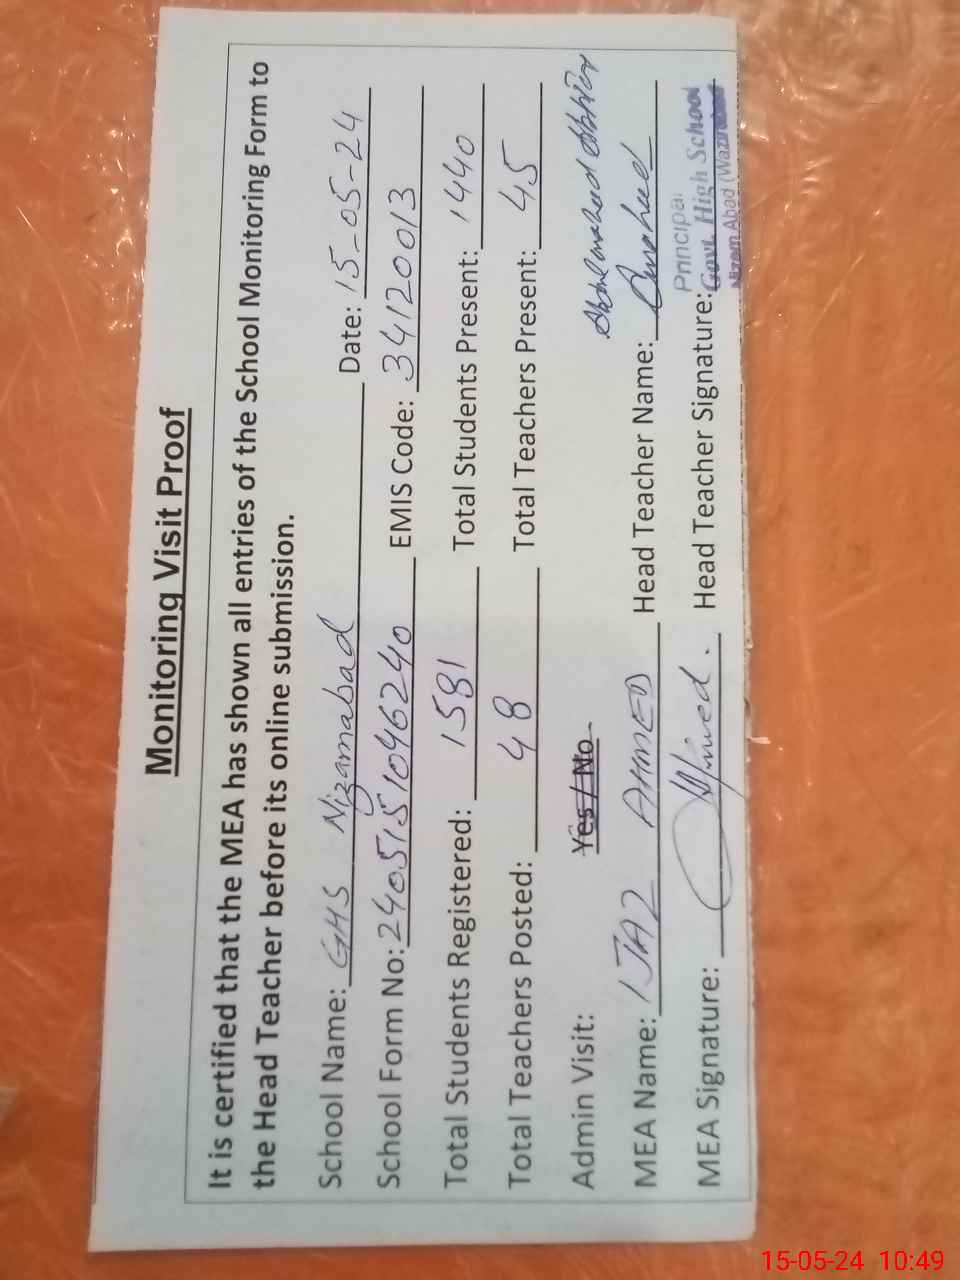 Monitoring Visit Proof
It is certified that the MEA has shown all entries of the School Monitoring Form to
the Head Teacher before its online submission.
School Name: GHS Nizamabad Date: 15-05-24
School Form No: 2405151046240 EMIS Code: 34120013
Total Students Registered: 1581 Total Students Present: 1440
Total Teachers Posted: 48 Total Teachers Present: 45
Admin Visit: Yes / No
MEA Name: IJAZ AHMED Head Teacher Name:
MEA Signature: Head Teacher Signature:
Principal
Govt. High School
Nizam Abad (Wazirabad
15-05-24 10:49